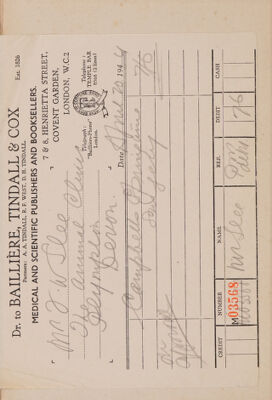 Dr. to BAILLIÈRE, TINDALL & COX Est. 1826
Partners: A. A. TINDALL, R. F. WEST, D. H. TINDALL.
MEDICAL AND SCIENTIFIC PUBLISHERS AND BOOKSELLERS.
7 & 8, HENRIETTA STREET,
COVENT GARDEN,
LONDON, W.C.2
Telegrams:
"Baillière-Phone"
London.
Telephone:
TEMPLE BAR
(2 lines)
Date April 20 194
Mr J. W. Slee
The Animal Clinic
Plympton
Devon.
Campbell Canine
Surgery
7/6
CREDIT NUMBER NAME REF. DEBIT CASH
M03568 Mr Slee 7/6